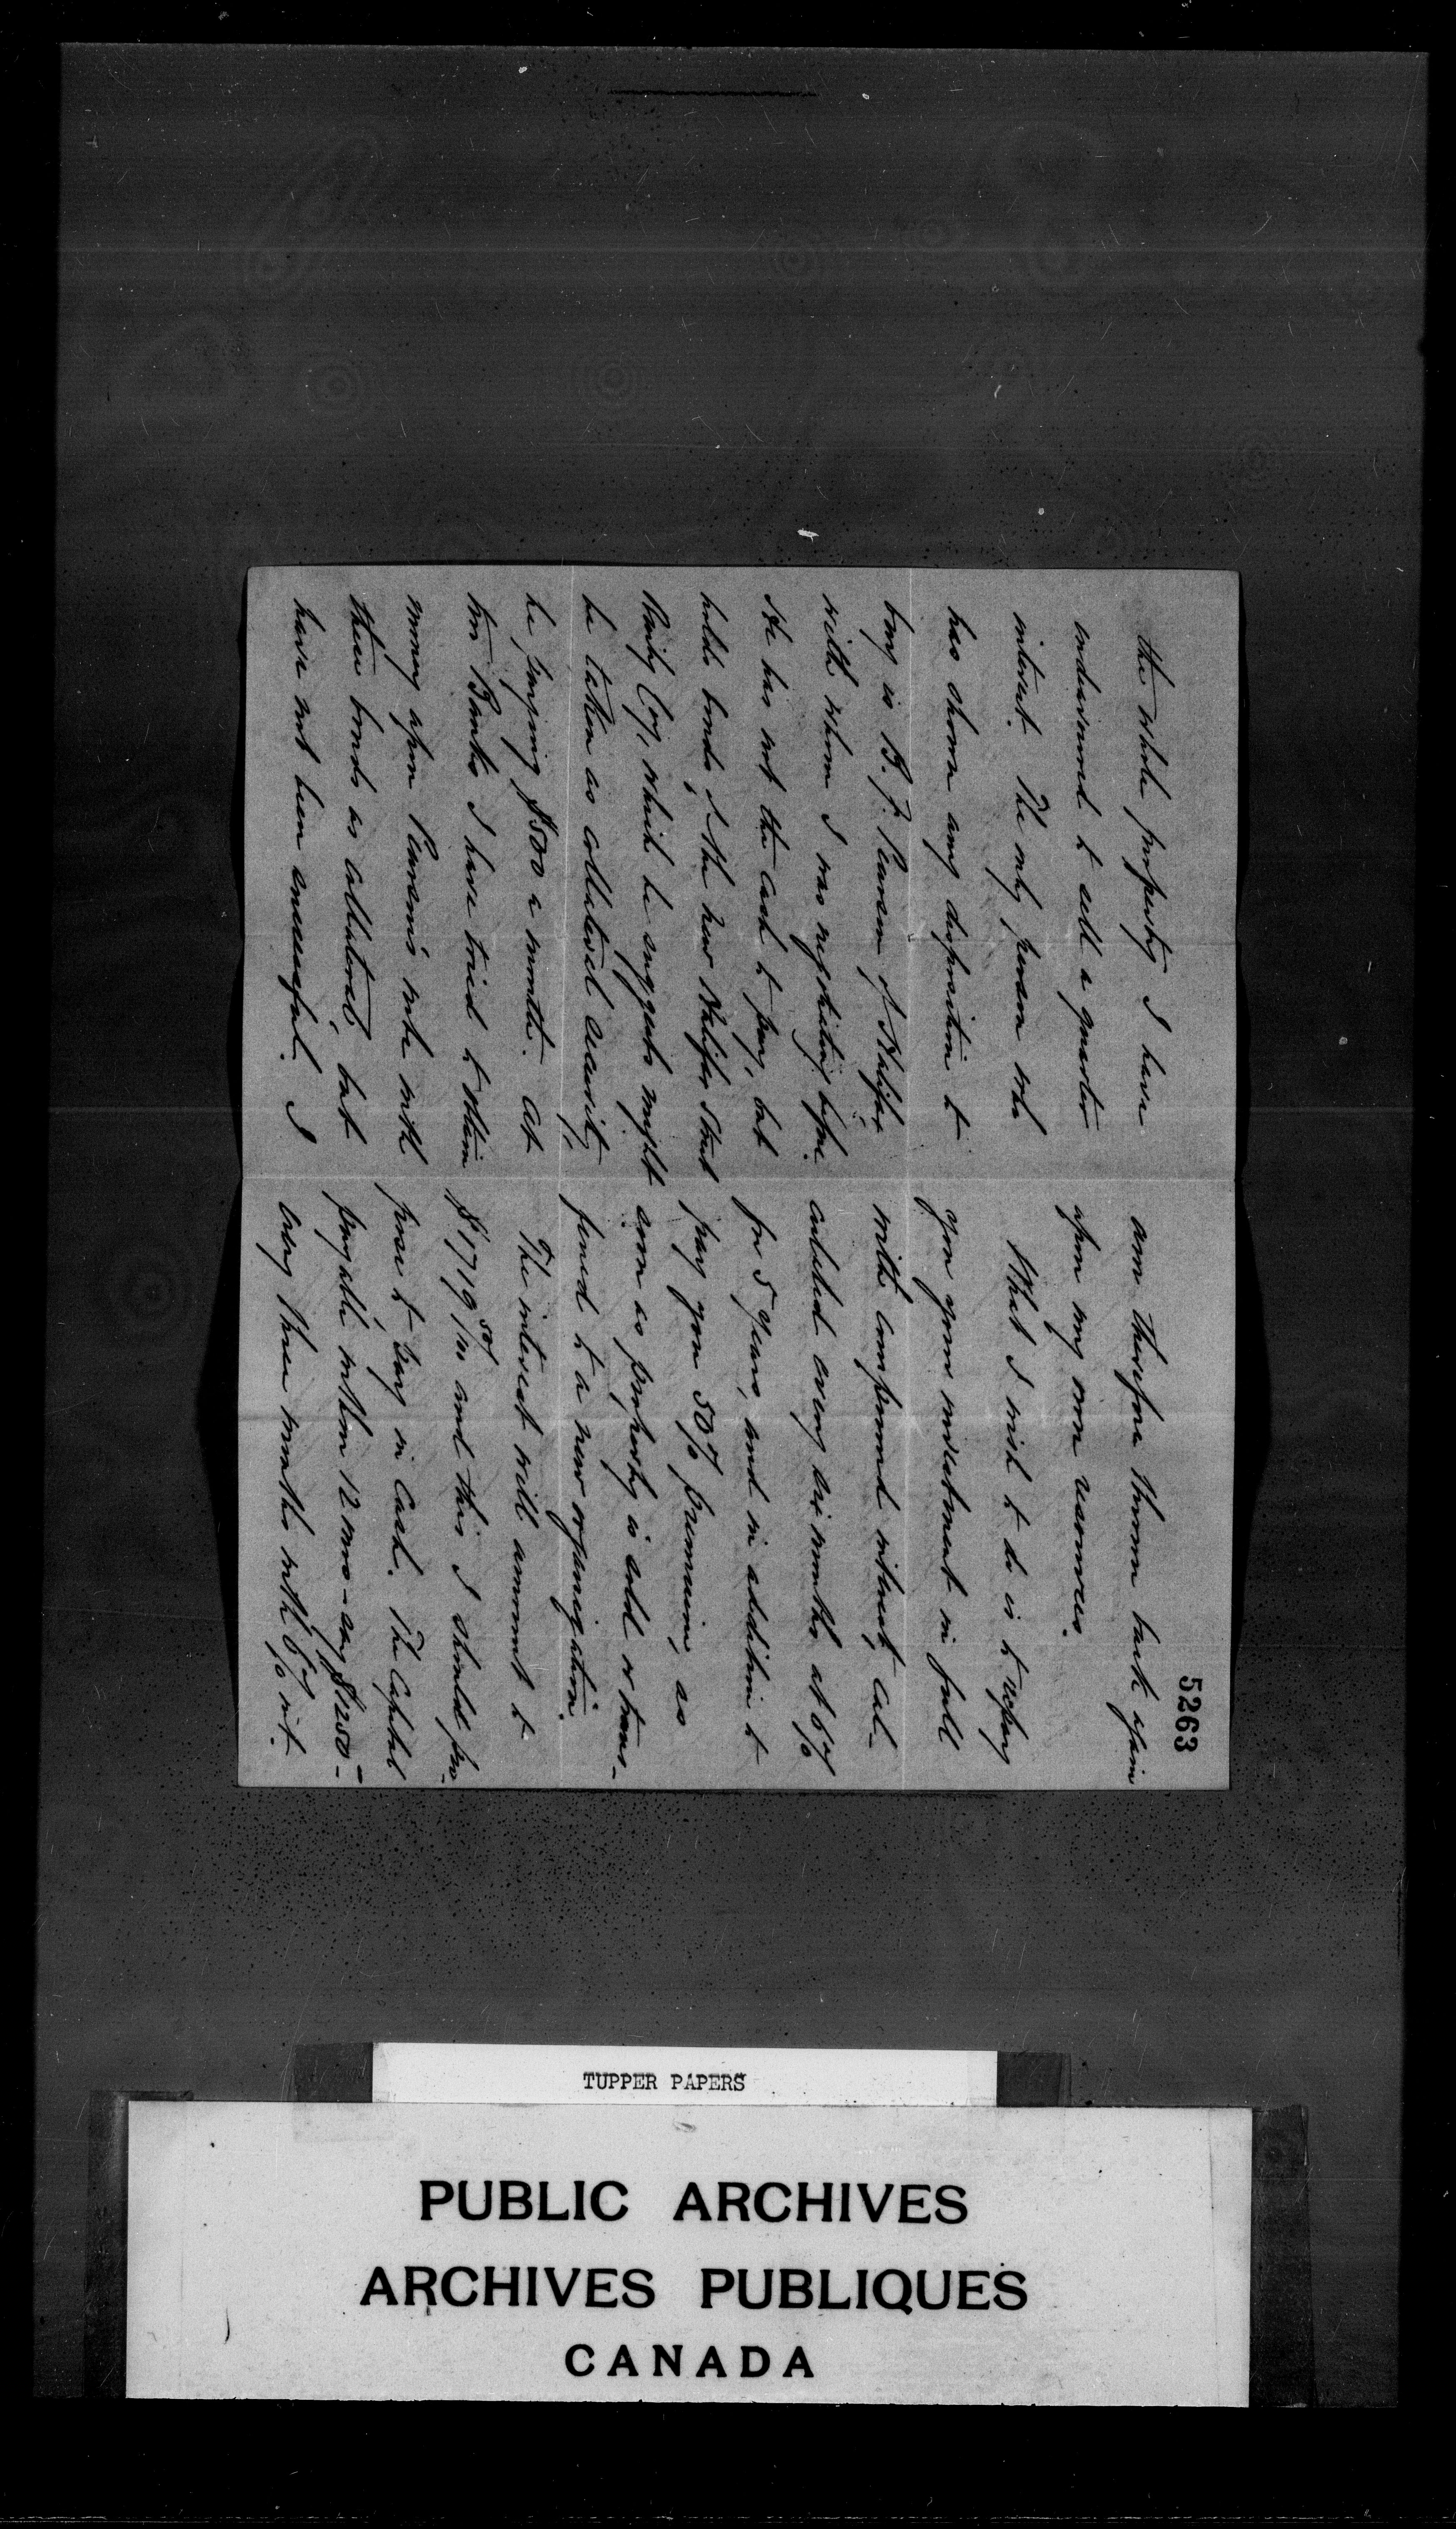 5263
the whole property I have
endeavoured to sell a quarter
interest. The only person who
has shown any disposition to
buy is B. F. Pearson, of Halifax
with whom I was negotiating before.
He has not the cash to pay, but
holds bonds of the new Halifax Street
Railwy Coy, which he suggests might
be taken as collateral security,
he paying $500 a month. At
two Banks I have tried to obtain
money upon Pearson's note with
these bonds as collateral, but
have not been successful. I
am therefore thrown back again
upon my own resources.
What I wish to do is to repay
you your investment in full
with compound interest, cal-
culated every six months at 6%
for 5 years, and in addition to
pay you 50% premium, as
soon as property is sold or trans-
ferred to a new organization.
The interest will amount to
$1719 50/100 and this I should pro-
pose to pay in cash. The Capital
payable within 12 mos - say $1250 -
every three months with 6% int.
TUPPER PAPERS
PUBLIC ARCHIVES
ARCHIVES PUBLIQUES
CANADA